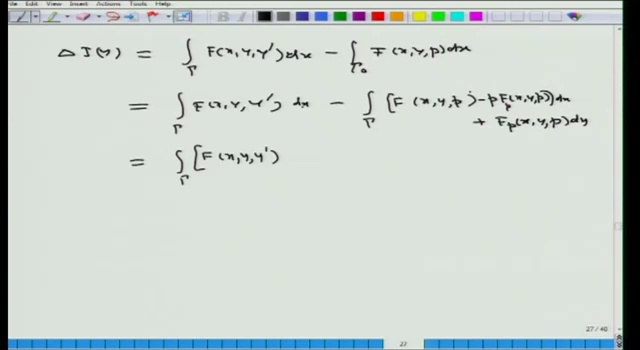 File View Insert Actions Tools Help
Δ J(y) = ∫_Γ F(x,y,y')dx − ∫_Γ₀ F(x,y,p)dx
= ∫_Γ F(x,y,y') dx − ∫_Γ [F(x,y,p) − p F_p(x,y,p)]dx
+ F_p(x,y,p)dy
= ∫_Γ [F(x,y,y')
27 / 40
27